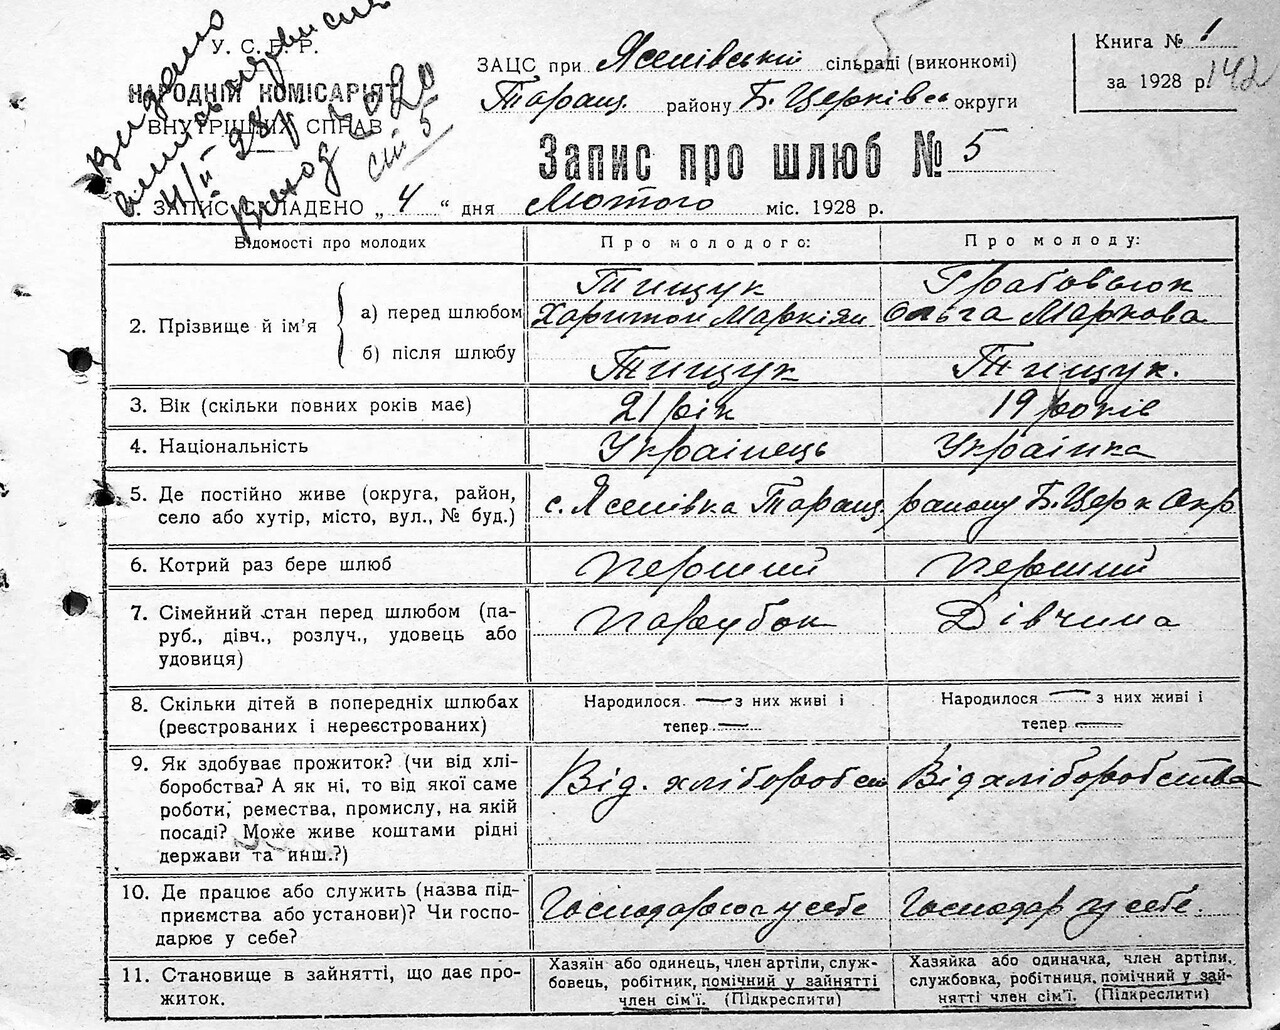 У. С. Р. Р.
НАРОДНІЙ КОМІСАРІЯТ
ВНУТРІШНІХ СПРАВ
Видано
4/II 28 р
ст 5
ЗАЦС при Ясенівській сільраді (виконкомі)
Таращ. району Б. Церківсь округи
Книга № 1
за 1928 р. 142
5
Запис про шлюб № 5
1. ЗАПИС СКЛАДЕНО „ 4 “ дня Лютого міс. 1928 р.
Відомості про молодих
Про молодого:
Про молоду:
2. Прізвище й ім'я
а) перед шлюбом
Тищук
Харитон Маркіян
Ольга Маркова
б) після шлюбу
Тищук
Тищук.
3. Вік (скільки повних років має)
21 рік
19 років
4. Національність
Українець
Українка
5. Де постійно живе (округа, район,
село або хутір, місто, вул., № буд.)
с. Ясенівка Таращ. району Б. Церк Окр.
6. Котрий раз бере шлюб
Перший
Перший
7. Сімейний стан перед шлюбом (па-
руб., дівч., розлуч., удовець або
удовиця)
Парубок
Дівчина
8. Скільки дітей в попередніх шлюбах
(реєстрованих і нереєстрованих)
Народилося — з них живі і
тепер —
Народилося — з них живі і
тепер —
9. Як здобуває прожиток? (чи від хлі-
боробства? А як ні, то від якої саме
роботи, ремества, промислу, на якій
посаді? Може живе коштами рідні
держави та инш.?)
Від. хліборобств
Від хліборобства
10. Де працює або служить (назва під-
приємства або установи)? Чи госпо-
дарює у себе?
у себе
Господар у себе.
11. Становище в зайнятті, що дає про-
житок.
Хазяїн або одинець, член артіли, служ-
бовець, робітник, помічний у зайнятті
член сім'ї. (Підкреслити)
Хазяйка або одиначка, член артіли,
службовка, робітниця, помічний у зай-
нятті член сім'ї. (Підкреслити)